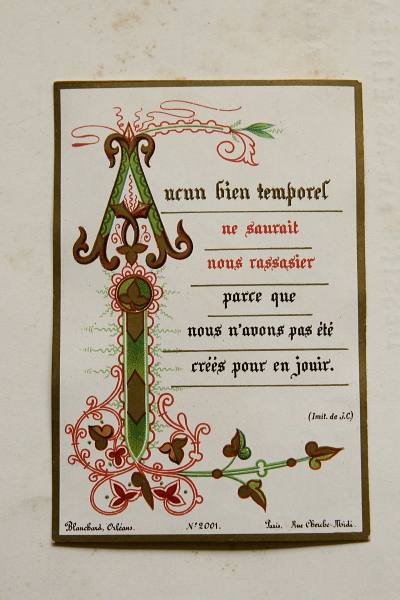 Aucun bien temporel
ne saurait
nous rassasier
parce que
nous n'avons pas été
créés pour en jouir.
(Imit. de J.C)
Blanchard, Orléans. N° 2001. Paris. Rue Cherche-Midi.